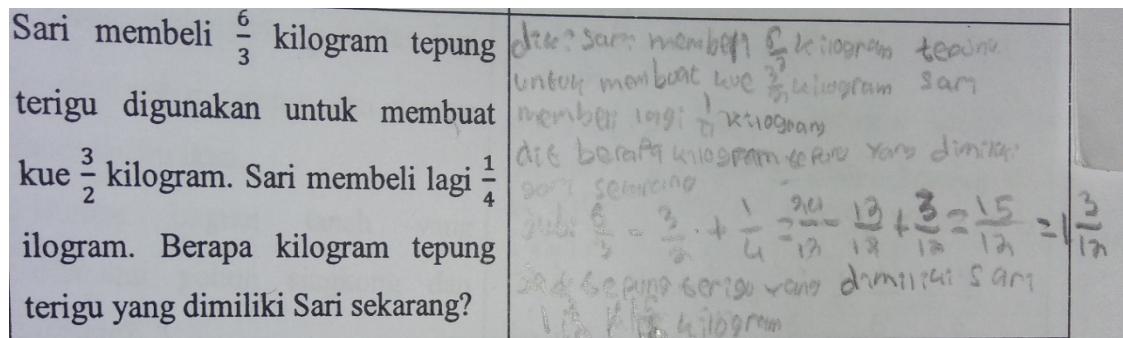 Sari membeli 6/3 kilogram tepung
terigu digunakan untuk membuat
kue 3/2 kilogram. Sari membeli lagi 1/4
ilogram. Berapa kilogram tepung
terigu yang dimiliki Sari sekarang?
dik: Sari membeli 6/3 kilogram tepung
untuk membuat kue 3/2 kilogram Sari
membeli lagi 1/4 kilogram
dit berapa kilogram yang dimiliki
Sari sekarang
6/3 - 3/2 + 1/4 = 24/12 - 12/12 + 3/12 = 15/12 = 1 3/12
tepung terigu yang dimiliki Sari
kilogram